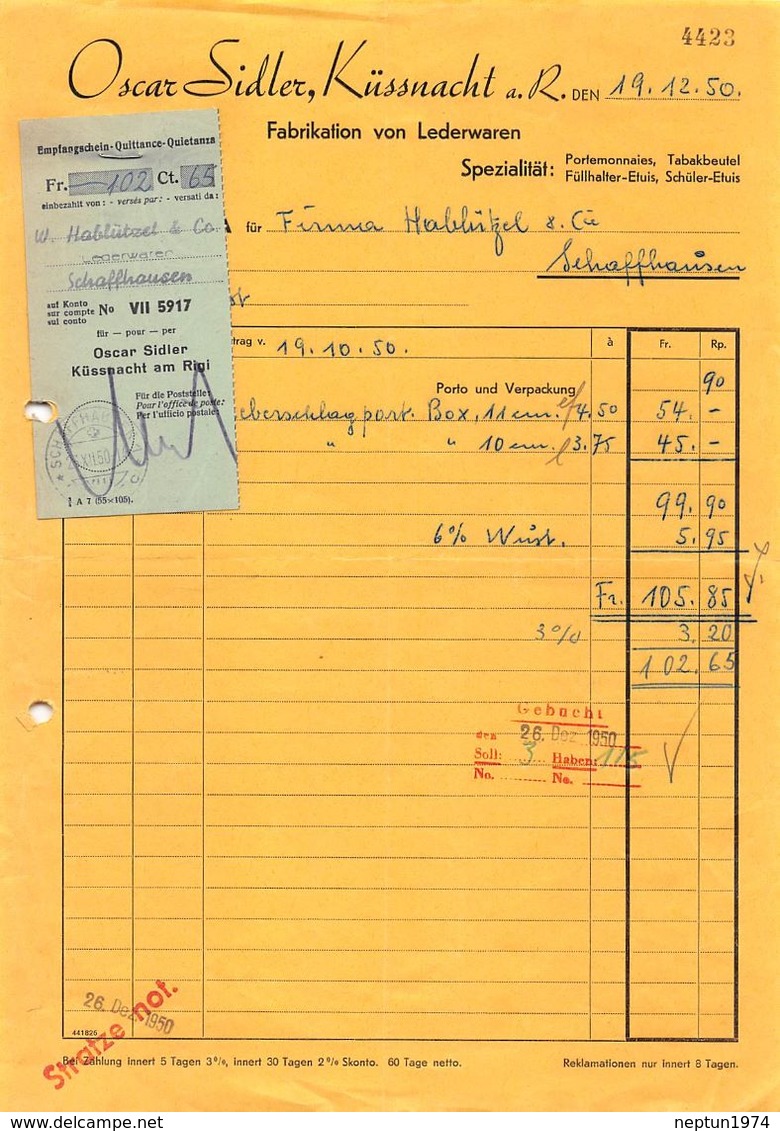 4423
Oscar Sidler, Küssnacht a. R. DEN 19.12.50.
Fabrikation von Lederwaren
Spezialität: Portemonnaies, Tabakbeutel
Füllhalter-Etuis, Schüler-Etuis
Empfangschein-Quittance-Quietanza
Fr. 102 Ct. 65
einbezahlt von : - versés par : - versati da :
W. Hablützel & Co.
Lederwaren
Schaffhausen
auf Konto
sur compte No VII 5917
sul conto
für — pour — per
Oscar Sidler
Küssnacht am Rigi
Für die Poststelle:
Pour l'office de poste:
Per l'ufficio postale:
A 7 (55×105).
A für Firma Hablützel & Cie
Schaffhausen
trag v. 19.10.50. à Fr. Rp.
Porto und Verpackung 90
eberschlagport. Box, 11 cm. 4.50 54. -
" " 10 cm. 3.75 45. -
99. 90
6% Wust. 5. 95
Fr. 105. 85
3% 3. 20
102. 65
Gebucht
den 26. Dez. 1950
Soll: 3 Haben: 118
No. No.
Stratze not.
26. Dez. 1950
441825
Bei Zahlung innert 5 Tagen 3%, innert 30 Tagen 2% Skonto. 60 Tage netto. Reklamationen nur innert 8 Tagen.
www.delcampe.net neptun1974